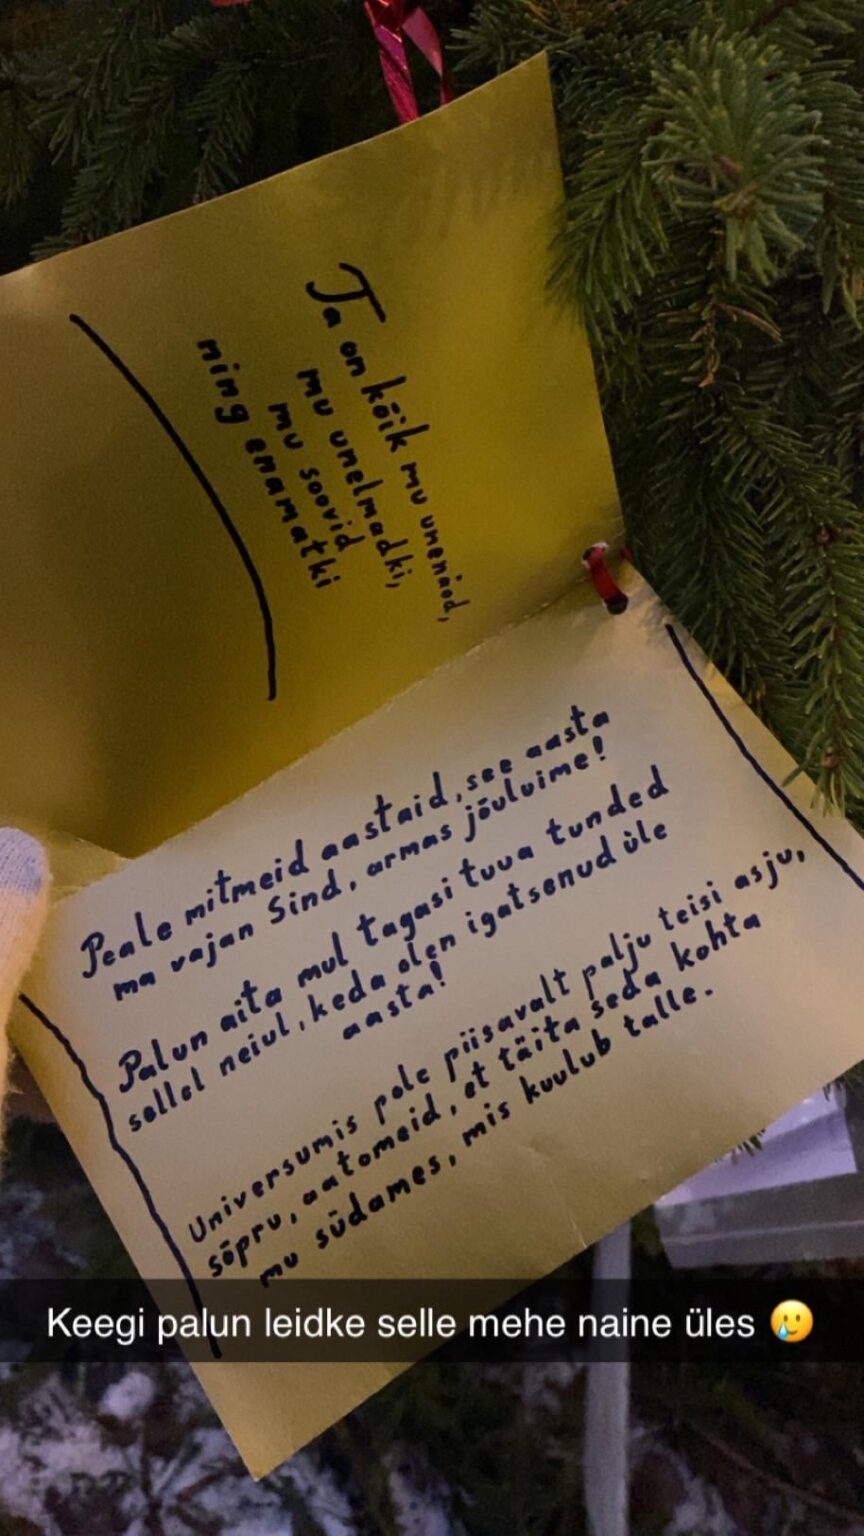 Ta on kõik mu unenäod,
mu unelmadki,
mu soovid
ning enamatki
Peale mitmeid aastaid, see aasta
ma vajan Sind, armas jõuluime!
Palun aita mul tagasi tuua tunded
sellel neiul, keda olen igatsenud üle
aasta!
Universumis pole piisavalt palju teisi asju,
sõpru, aatomeid, et täita seda kohta
mu südames, mis kuulub talle.
Keegi palun leidke selle mehe naine üles 🥲